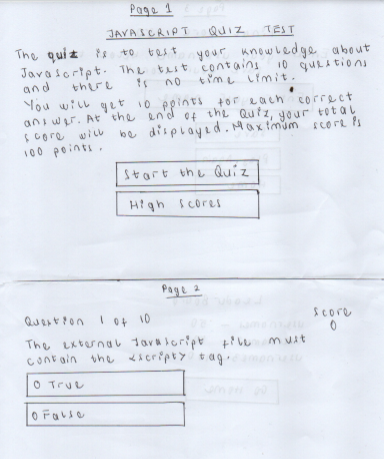 Page 1
JAVASCRIPT QUIZ TEST
The quiz is to test your knowledge about
Javascript. The test contains 10 questions
and there is no time limit.
You will get 10 points for each correct
answer. At the end of the Quiz, your total
score will be displayed. Maximum score is
100 points.
Start the Quiz
High Scores
Page 2
Question 1 of 10
Score
0
The external Javascript file must
contain the <script> tag.
O True
O False